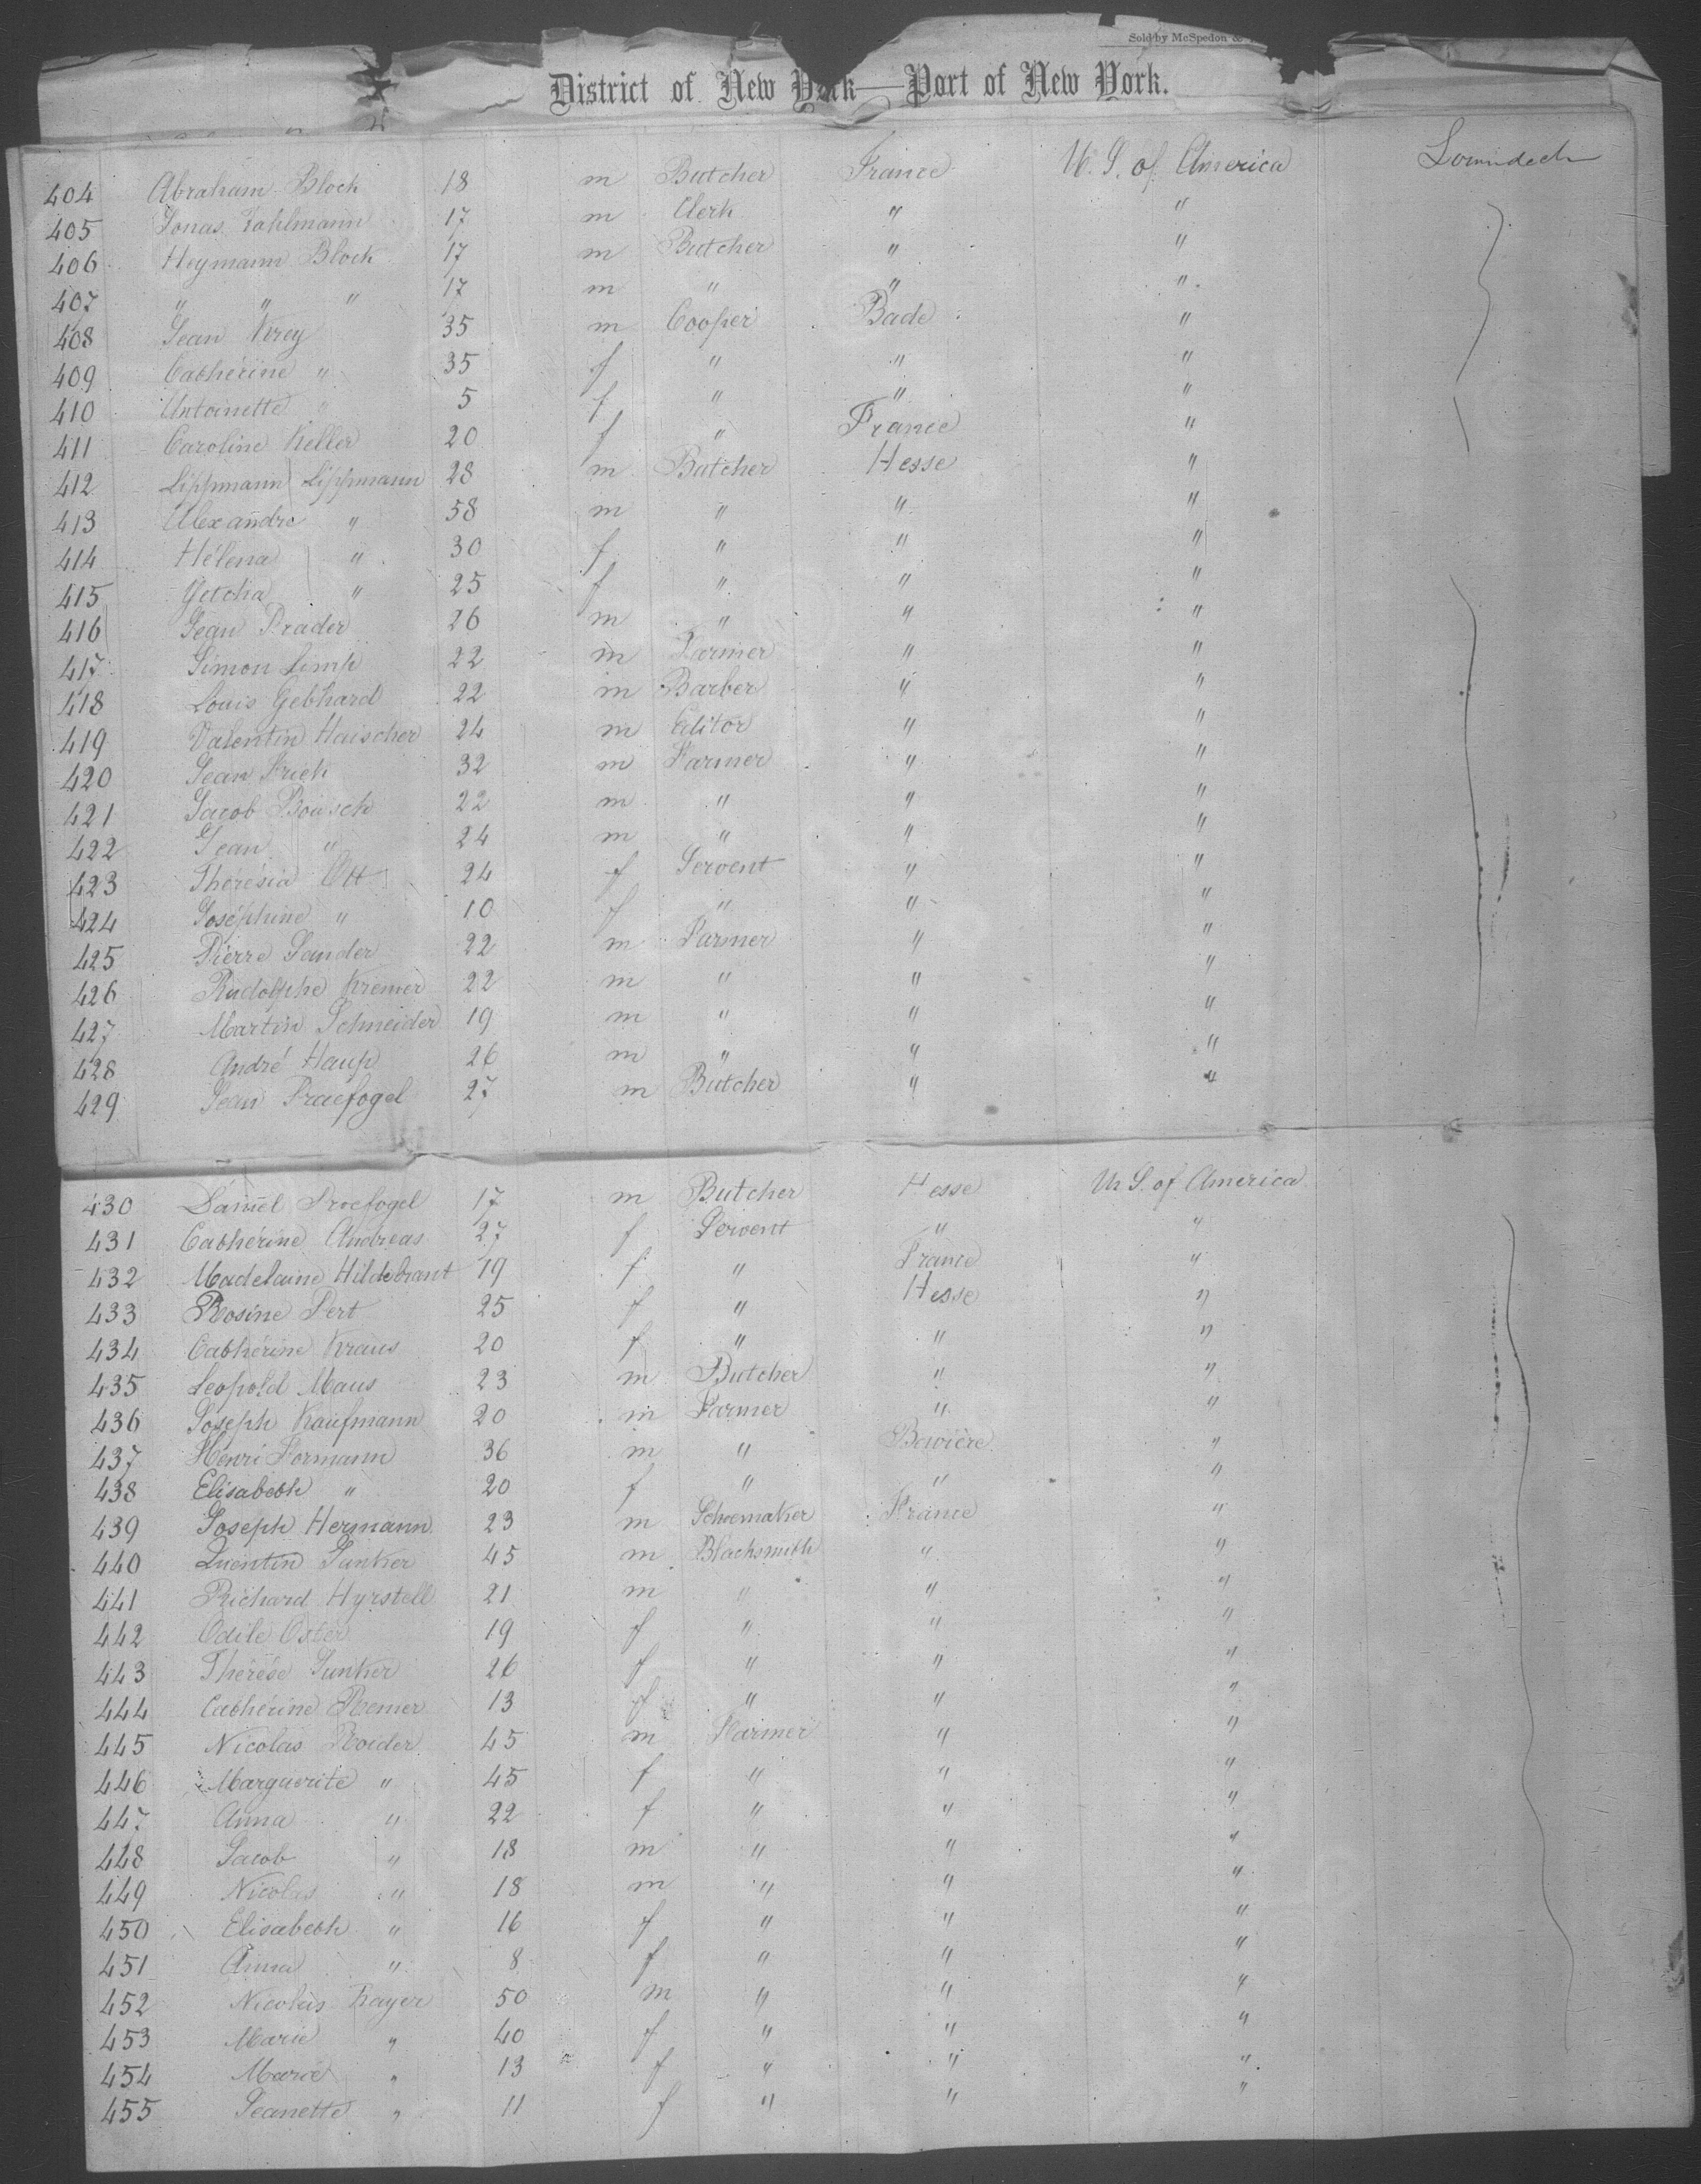 Sold by McSpedon &
District of New York—Port of New York.
404 Abraham Bloch 18 m Butcher France U. S. of America Lowerdeck
405 Jonas Kahlmann 17 m Clerk " "
406 Heymann Bloch 17 m Butcher " "
407 " " " 17 m " " "
408 Jean Krey 35 m Cooper Bade "
409 Cathérine " 35 f " " "
410 Antoinette " 5 f " " "
411 Caroline Keller 20 f " France "
412 Lippmann Lippmann 28 m Butcher Hesse "
413 Alexandre " 58 m " " "
414 Hélena " 30 f " " "
415 Getcha " 25 f " " "
416 Jean Prader 26 m " " "
417 Simon 22 m Farmer " "
418 Louis Gebhard 22 m Barber " "
419 Valentin Haischer 24 m Editor " "
420 Jean Frieh 32 m Farmer " "
421 Jacob Bousch 22 m " " "
422 Jean " 24 m " " "
423 Thérésia Ott 24 f Servent " "
424 Joséphine " 10 f " " "
425 Pierre Sander 22 m Farmer " "
426 Rudolphe Kremer 22 m " " "
427 Martin Schneider 19 m " " "
428 André Haup 26 m " " "
429 Jean Praefogel 27 m Butcher " "
430 Samuel Proefogel 17 m Butcher Hesse U. S. of America
431 Cathérine Andreas 27 f Servent " "
432 Madelaine Hildebrant 19 f " France "
433 Rosine Pert 25 f " Hesse "
434 Cathérine Kraus 20 f " " "
435 Leopold Maus 23 m Butcher " "
436 Joseph Kaufmann 20 m Farmer " "
437 Henri Formann 36 m " Bavière "
438 Elisabeth " 20 f " " "
439 Joseph Hermann 23 m Schoemaker France "
440 Quentin Junker 45 m Blacksmith " "
441 Richard Hyrstell 21 m " " "
442 Odile Oster 19 f " " "
443 Thérése Junker 26 f " " "
444 Cathérine Roemer 13 f " " "
445 Nicolas Roider 45 m Farmer " "
446 Marguerite " 45 f " " "
447 Anna " 22 f " " "
448 Jacob " 18 m " " "
449 Nicolas " 18 m " " "
450 Elisabeth " 16 f " " "
451 Anna " 8 f " " "
452 Nicolas Kayer 50 m " " "
453 Marie " 40 f " " "
454 Marie " 13 f " " "
455 Jeanette " 11 f " " "